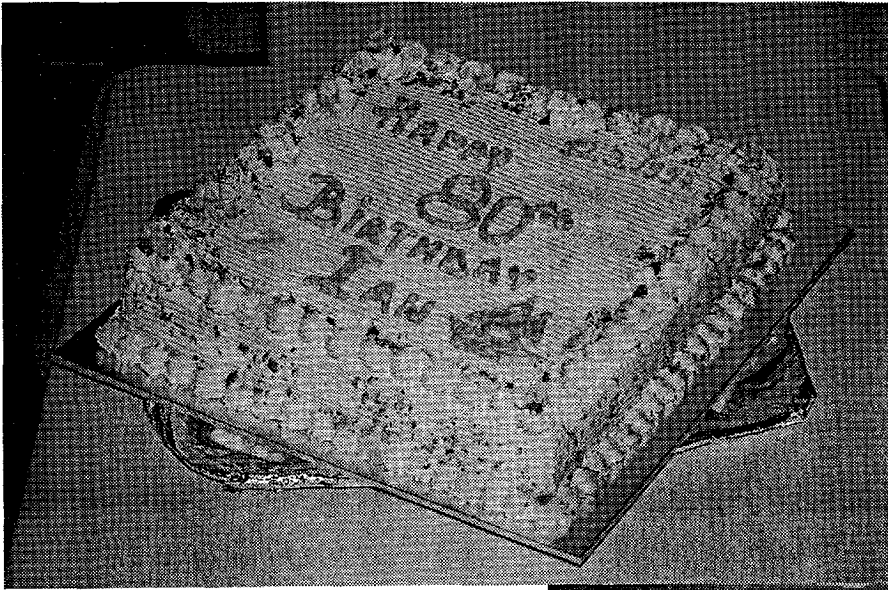 Happy
80th
Birthday
Ian